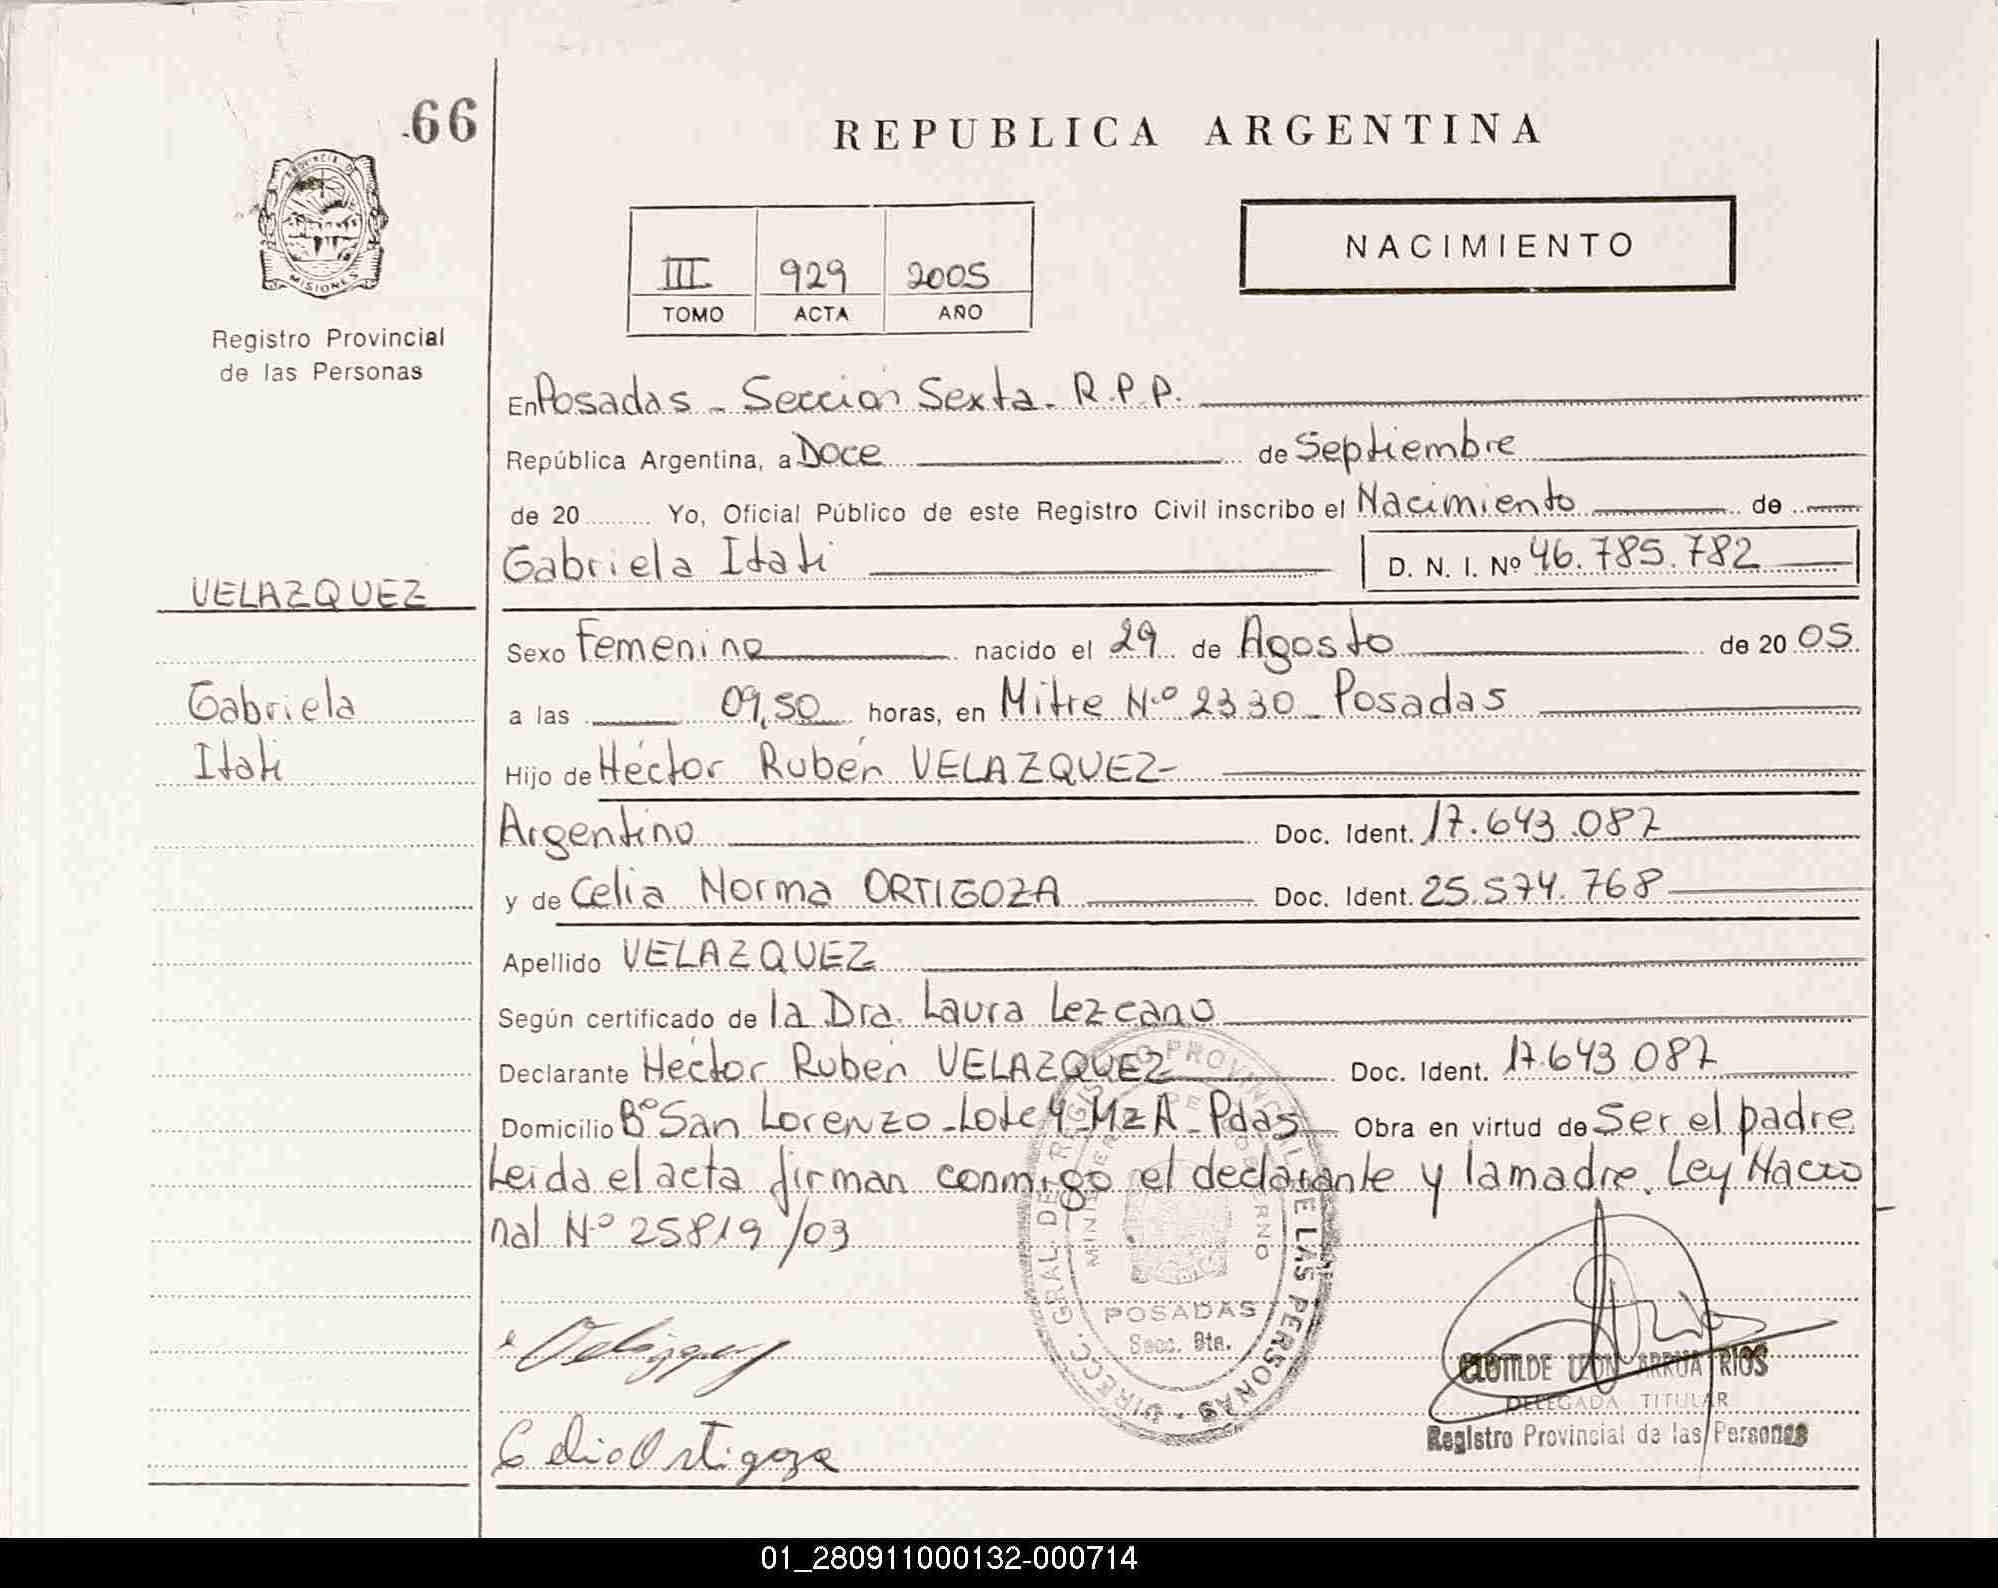 66
REPUBLICA ARGENTINA
PROVINCIA DE
MISIONES
NACIMIENTO
III 929 2005
TOMO ACTA AÑO
Registro Provincial
de las Personas
En Posadas - Sección Sexta - R.P.P.
República Argentina, a Doce de Septiembre
de 20 Yo, Oficial Público de este Registro Civil inscribo el Nacimiento de
Gabriela Itati D. N. I. Nº 46.785.782
VELAZQUEZ
Sexo Femenino nacido el 29 de Agosto de 20 05
Gabriela
a las 09,50 horas, en Mitre Nº 2330 - Posadas
Itati
Hijo de Héctor Rubén VELAZQUEZ -
Argentino Doc. Ident. 17.643.087
y de Celia Norma ORTIGOZA Doc. Ident. 25.574.768
Apellido VELAZQUEZ
Según certificado de la Dra. Laura Lezcano
Declarante Héctor Rubén VELAZQUEZ Doc. Ident. 17.643.087
Domicilio Bº San Lorenzo - Lote 4 - Mz A - Pdas Obra en virtud de Ser el padre
Leida el acta firman conmigo el declarante y la madre. Ley Nacio
nal Nº 25819/03
DIRECC. GRAL. DE REGISTRO PROVINCIAL DE LAS PERSONAS
POSADAS
Secc. 6ta.
Velázquez
CLOTILDE ARRUA RIOS
DELEGADA TITULAR
Registro Provincial de las Personas
Celia Ortigoza
01_280911000132-000714